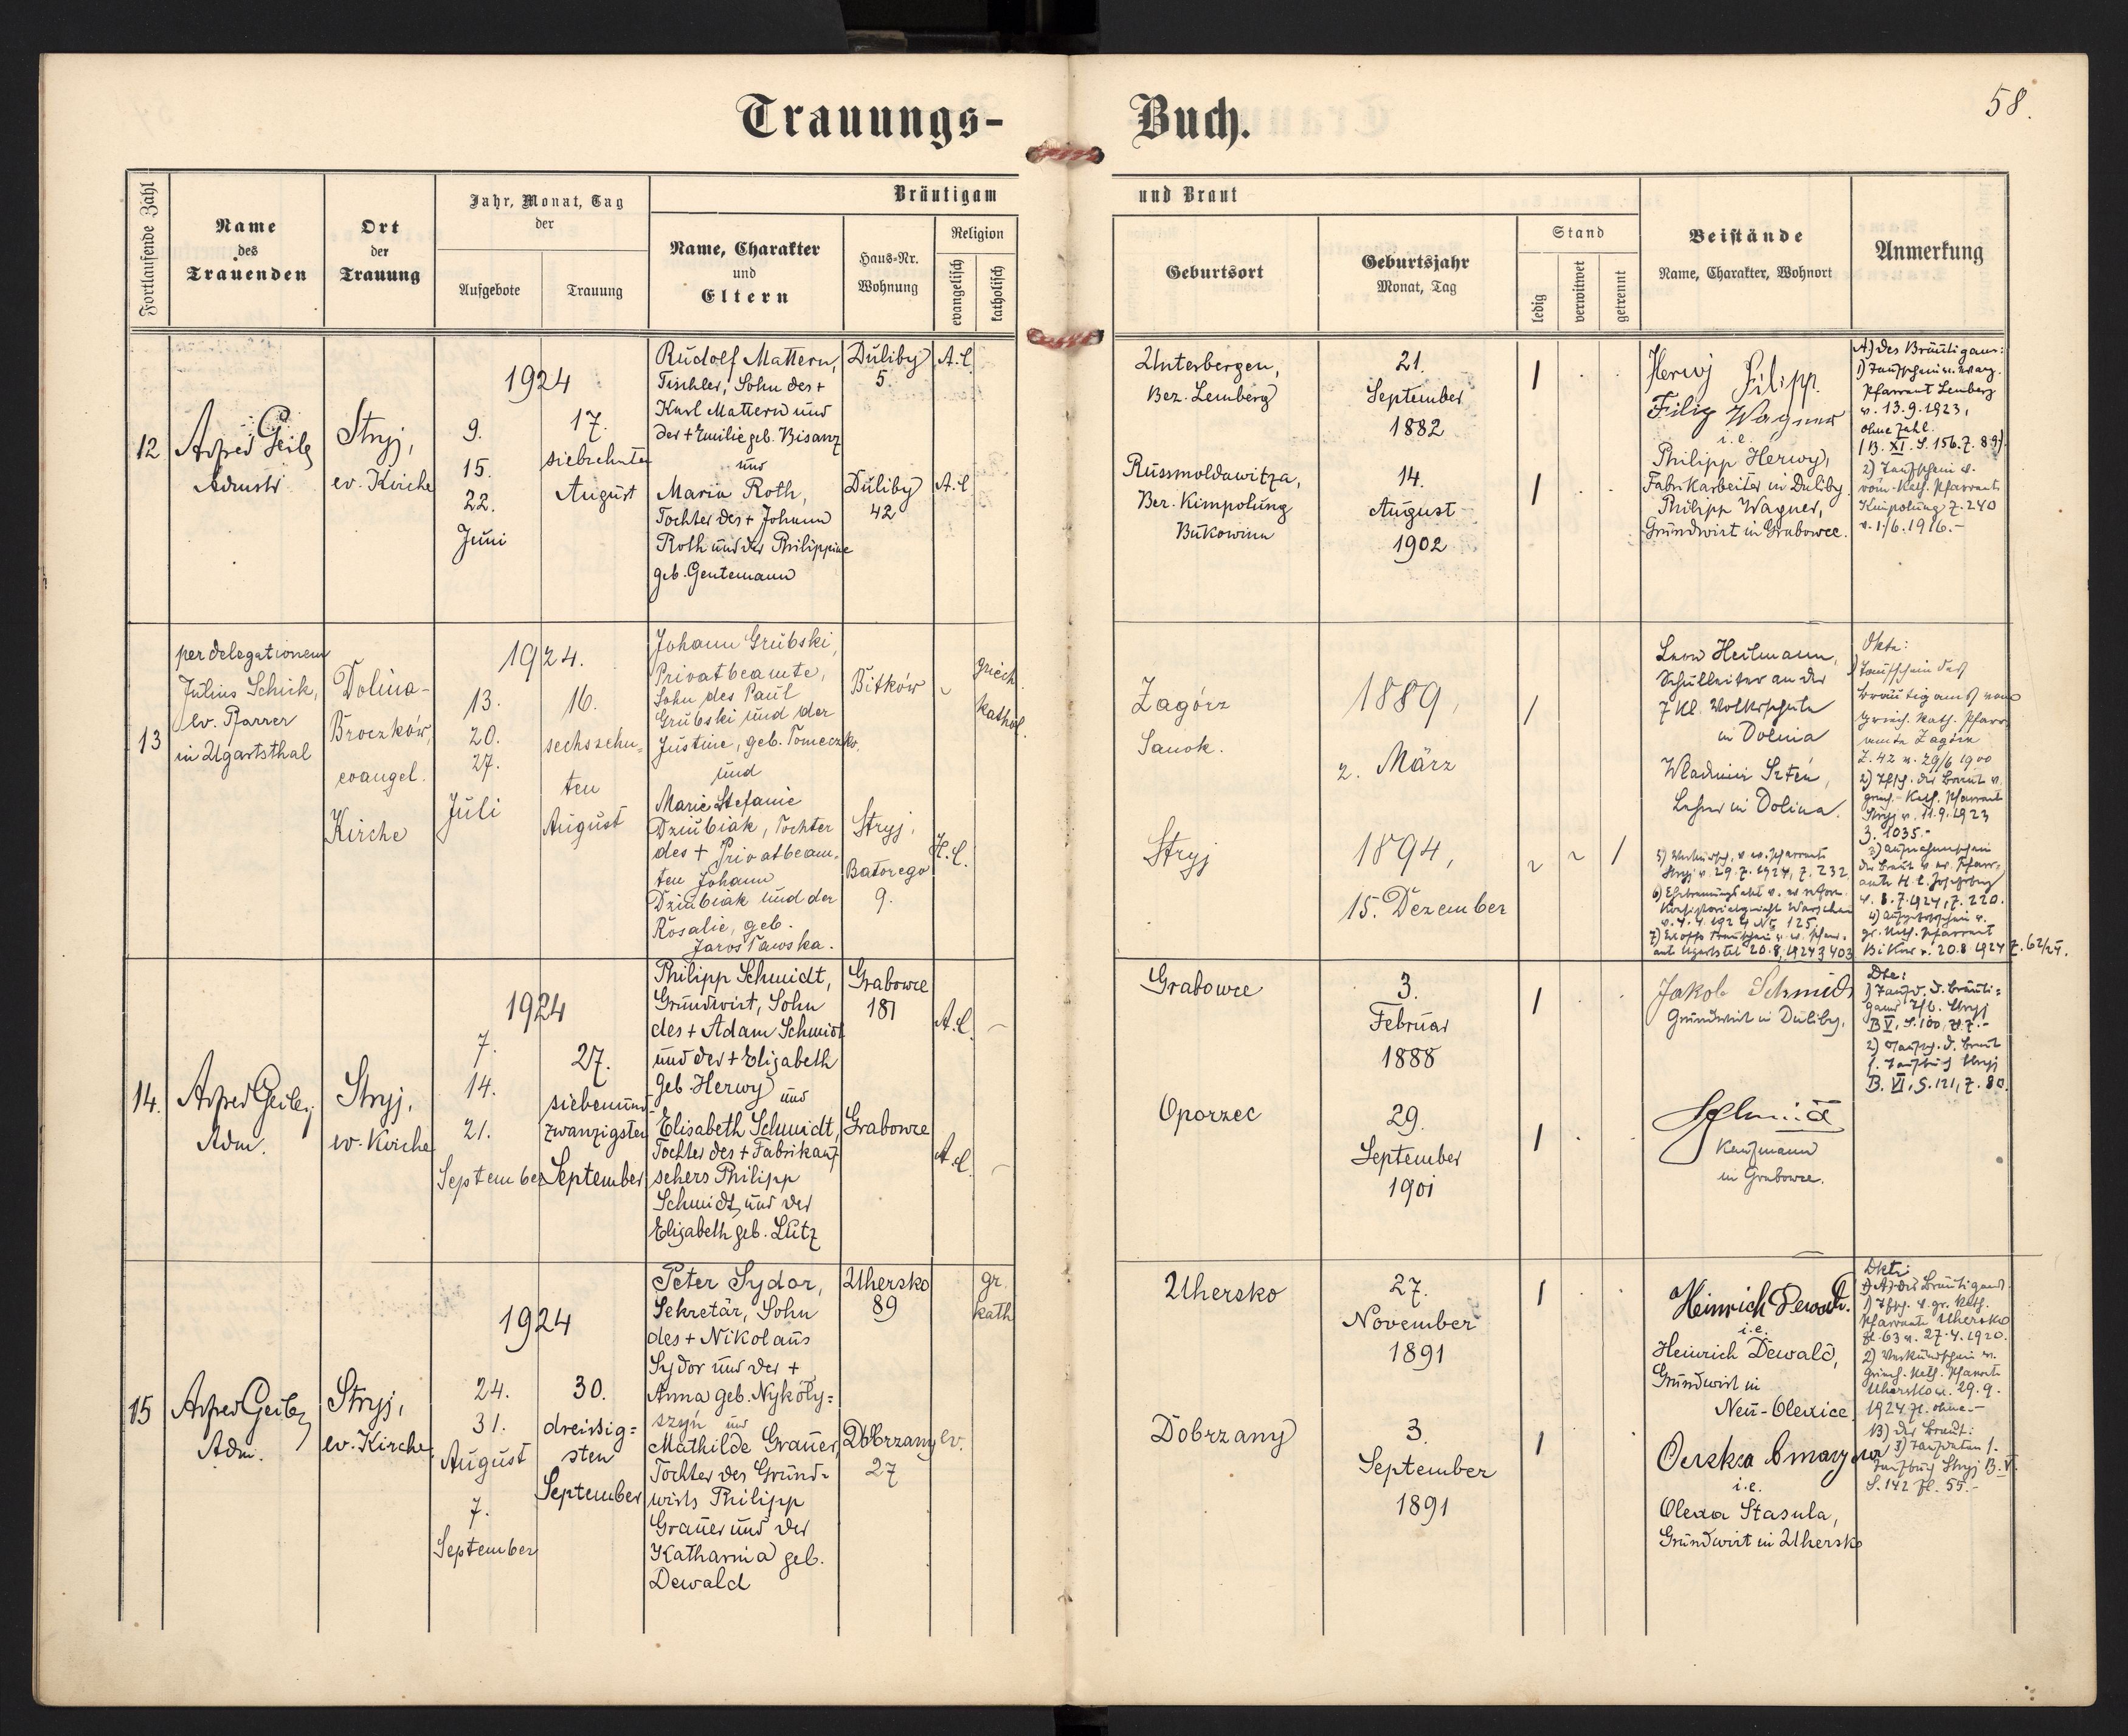 Trauungs- Buch.
58.
Fortlaufende Zahl
Name
des
Trauenden
Ort
der
Trauung
Jahr, Monat, Tag
der
Aufgebote
Trauung
Bräutigam und Braut
Name, Charakter
und
Eltern
Haus-Nr.
Wohnung
Religion
evangelisch
katholisch
Geburtsort
Geburtsjahr
Monat, Tag
Stand
ledig
verwitwet
getrennt
Beistände
Name, Charakter, Wohnort
Anmerkung
12
Stryj,
ev. Kirche
1924
9.
15.
22.
Juni
17.
siebzehnten
August
Rudolf Mattern,
Tischler, Sohn des +
Karl Mattern und
der + Emilie geb. Bisanz
und
Maria Roth,
Tochter des + Johann
Roth und der Philippine
geb. Gentemann
Duliby
5.
Duliby
42
A.C.
A.C
Unterbergen,
Bez. Lemberg
Russmoldawitza,
Bez. Kimpolung
Bukowina
21.
September
1882
14.
August
1902
Herwy Filipp.
Filip Wagner
i.e.
Philipp Herwy,
Fabrikarbeiter in Duliby.
Philipp Wagner,
Grundwirt in Grabowce.
A) des Bräutigams:
1) Taufschein v. evang.
Pfarramt Lemberg
v. 13.9.1923,
ohne Zahl.
(B. XI. S. 156. Z. 89).
2) Taufschein v.
röm.-kath. Pfarramt
Kimpolung Z. 240
v. 1/6. 1916.-
13
per delegationem
Julius Schick,
ev. Pfarrer
in Ugartsthal
Dolina-
Broczków,
evangel.
Kirche
1924.
13.
20.
27.
Juli
16.
sechszehn=
ten
August
Johann Grubski,
Privatbeamte,
Sohn des Paul
Grubski und der
Justine, geb. Tomeczko,
und
Marie Stefanie
Dziubiak, Tochter
des + Privatbeam.
ten Johann
Dziubiak und der
Rosalie, geb.
Jarosławska.
Bitków
Stryj,
Batorego
9.
griech.
kathol.
H.C.
Zagórz
Sanok.
Stryj
1889,
2. März
1894,
15. Dezember
Leon Heilmann,
Schulleiter an der
7 Kl. Volksschule
in Dolina
Lehrer in Dolina.
Stryj v. 29.7.1924, Z. 232
Taufschein des
Bräutigams vom
griech. kath. Pfarr-
amte Zagórz
Z. 42 v. 29/6 1900
griech.-kath. Pfarramt
Stryj v. 11.9.1923
3. 1035.-
v. 8.7.1924, Z. 220.
gr. kath. Pfarramt
v. 20.8 1924 Z. 62/24.
14.
Adm.
Stryj,
ev. Kirche
1924
7.
14.
21.
September
27.
siebenund
zwanzigsten
September
Philipp Schmidt,
Grundwirt, Sohn
des + Adam Schmidt
und der + Elisabeth
geb. Herwy und
Elisabeth Schmidt,
Tochter des + Fabrikauf
sehers Philipp
Schmidt und der
Elisabeth geb. Lutz
Grabowce
187
Grabowce
A.C.
A.C.
Grabowce
Oporzec
3.
Februar
1888
29.
September
1901
Jakob Schmidt
Grundwirt in Duliby.
Schmidt
Kaufmann
in Grabowce.
B V, S. 100, Z. 7.-
B. VI, S. 121, Z. 80.
15
Adm.
Stryj,
ev. Kirche
1924
24.
31.
August
7.
September
30.
dreissig=
sten
September
Peter Sydor,
Sekretär, Sohn
des + Nikolaus
Sydor und der +
Anna geb. Nykoły=
szyn und
Mathilde Grauer,
Tochter des Grund=
wirts Philipp
Grauer und der
Katharina geb.
Dewald
Uhersko
89
Dobrzany
27
gr.
kath
ev.
Uhersko
Dobrzany
27.
November
1891
3.
September
1891
Heinrich Dewald.
i.e.
Heinrich Dewald,
Grundwirt in
Neu-Olexice
i.e.
Olexa Stasula,
Grundwirt in Uhersko
A) des Bräutigams.
Pfarramte Uhersko
Zl. 63 v. 27.4.1920.
2) Verkündschein v.
griech.-kath. Pfarramt
Uhersko v. 29.9.
1924 Zl. ohne.-
B) der Braut:
Taufbuch Stryj B. V.
S. 142 Zl. 55.-